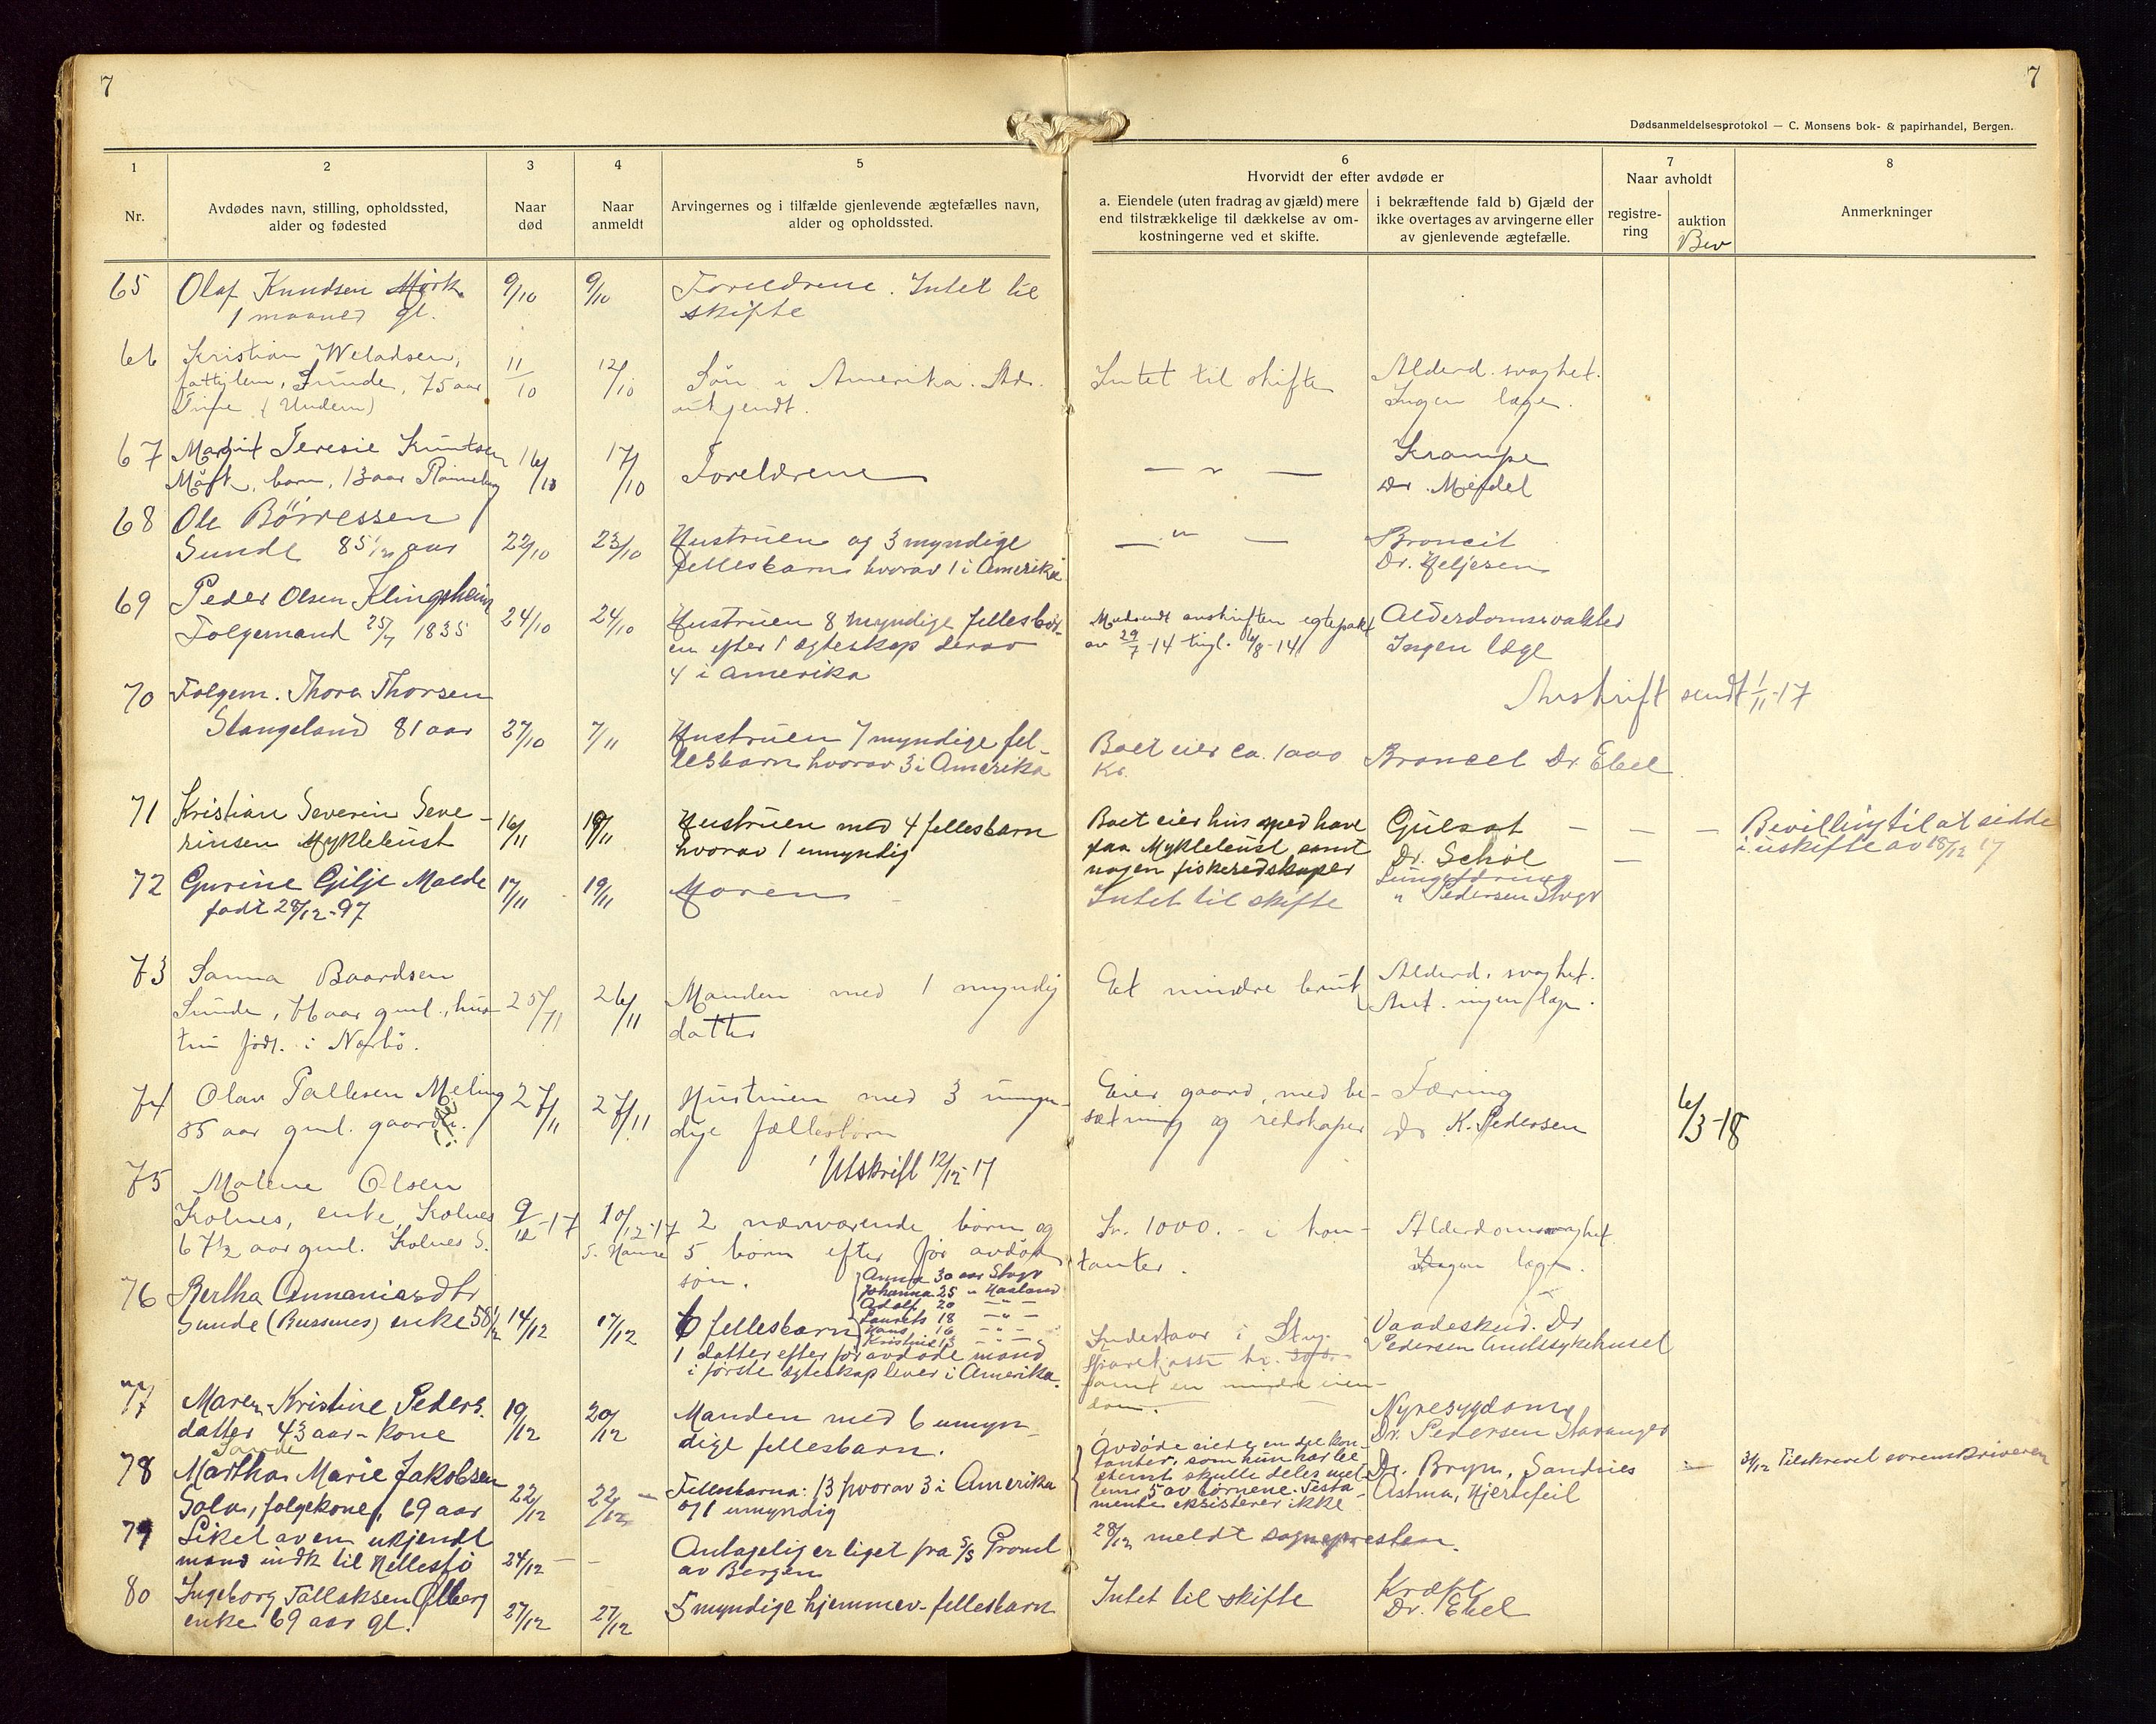 7
7
Dødsanmeldelsesprotokol — C. Monsens bok- & papirhandel, Bergen.
1
2
3
4
5
6
7
8
Nr.
Avdødes navn, stilling, opholdssted,
alder og fødested
Naar
død
Naar
anmeldt
Arvingernes og i tilfælde gjenlevende ægtefælles navn,
alder og opholdssted.
Hvorvidt der efter avdøde er
a. Eiendele (uten fradrag av gjæld) mere
end tilstrækkelige til dækkelse av om-
kostningerne ved et skifte.
i bekræftende fald b) Gjæld der
ikke overtages av arvingerne eller
av gjenlevende ægtefælle.
Naar avholdt
registre-
ring
auktion
Bev
Anmerkninger
65
Olaf Knudsen Mørk
1 maaned gl.
9/10
9/10
Foreldrene. Intet til
skifte
66
Kristian
Sunde, 75 aar
11/10
12/10
Søn i Amerika. Adr.
ukjendt.
Intet til skifte
Alderd. svaghet.
Ingen læge.
67
Margit Teresie
barn, 13 aar
16/10
17/10
Foreldrene
— " —
Krampe
Dr. Mejdel
68
Ole Børressen
Sunde 85 1/2 aar
22/10
23/10
Hustruen og 3 myndige
fellesbarn hvorav 1 i Amerika
— " —
Broncit
Dr. Heljesen
69
Peder Olsen Klingsheim
Folgemand 25/7 1835
24/10
24/10
Hustruen 8 myndige fellesbør-
en efter 1 ægteskap derav
4 i Amerika
egtepakt
av 29/7-14 tingl. 4/8-14
Ingen læge
70
Folgem. Thore Thorsen
Stangeland 81 aar
27/10
7/11
Hustruen 7 myndige fel-
lesbarn hvorav 3 i Amerika
Avskrift sendt 1/11-17
Boet eier ca. 1000
Kr.
Broncet Dr. Ebel
71
Kristian Severin Seve-
rinsen Myklebust
16/11
19/11
Hustruen med 4 fellesbarn
hvorav 1 umyndig
Boet eier hus med have
paa Myklebust samt
nogen fiskeredskaper
Gulsot — — —
Dr. Schøl —
Bevilling til at sidde
i uskifte av 18/12 17
72
Gurine Gilje Malde
født 28/12-97
17/11
19/11
Moren
Intet til skifte
" Pedersen Stvgr
73
Sanna Baardsen
Sunde, 76 aar gml., hus-
tru født. i Nærbø.
25/11
26/11
Manden med 1 myndig
datter
Et mindre bruk
Alderd. svaghet.
Ant. ingen læge.
74
Olav Pallesen Meling
85 aar gml.
27/11
27/11
Hustruen med 3 umyn-
dige fællesbørn
Utskrift 12/12-17
Eier gaard, med be-
sætning og redskaper
Tæring
Dr K. Pedersen
6/3-18
75
Malene Olsen
Kolnes, enke, Kolnes
67 1/2 aar gml. Kolnes S.
9/12-17
10/12-17
2 nærværende børn og
5 børn efter før avdød
søn.
Kr. 1000.- i kon-
tanter.
Alderdomssvaghet.
Ingen læge.
76
Bertha Annaniasdtr
Sunde (Russnes) enke 58 1/2
14/12
17/12
6 fellesbarn
Anna 30 aar Stvgr
Johanna 25 " Haaland
Adolf 20 — " —
Laurits 18 — " —
Hans 16 — " —
Kristine 13 — " —
1 datter efter før avdøde mand
i første ægteskap lever i Amerika.
Indestaar i Stvg.
Sparekasse kr.
samt en mindre eien-
dom.
Vaadeskud. Dr
Pedersen Amtssykehuset
77
Maren Kristine Peders.
datter 43 aar - kone
19/12
20/12
Manden med 6 umyn-
dige fellesbarn.
Nyresygdom
Dr. Pedersen Stavanger
78
Martha Marie Jakobsen
Sola, folgekone, 69 aar
22/12
22/12
Fellesbarna: 13 hvorav 3 i Amerika
og 1 umyndig
Avdøde eiede en del kon-
tanter, som hun har be
stemt skulle deles mel-
lem 5 av børnene. Testa-
mente eksisterer ikke
Dr. Bryn, Sandnes
Astma, Hjertefeil
31/12 Tilskrevet sorenskriveren
79
Liket av en ukjendt
mand indk til Hellestø
24/12 — -
Antagelig er liget fra S/S
av Bergen
28/12 meldt sognepresten.
80
Ingeborg Tallaksen
enke 69 aar gl.
27/12
27/12
5 myndige hjemmev. fellesbarn
Intet til skifte
Kræft
Dr. Ebel